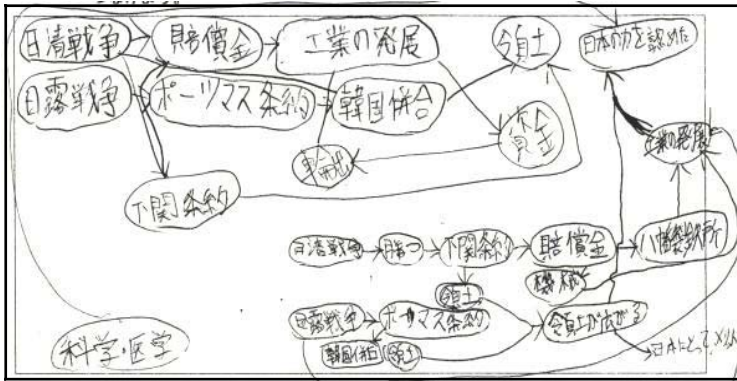 日清戦争 賠償金 工業の発展 領土 日本の力を認めた
日露戦争 ポーツマス条約 韓国併合
資金 工業の発展
輸出
下関条約
日清戦争 勝つ 下関条約 賠償金 八幡製鉄所
機械
領土
日露戦争 ポーツマス条約 領土が広がる
韓国併合 領土
科学・医学
日本にとって